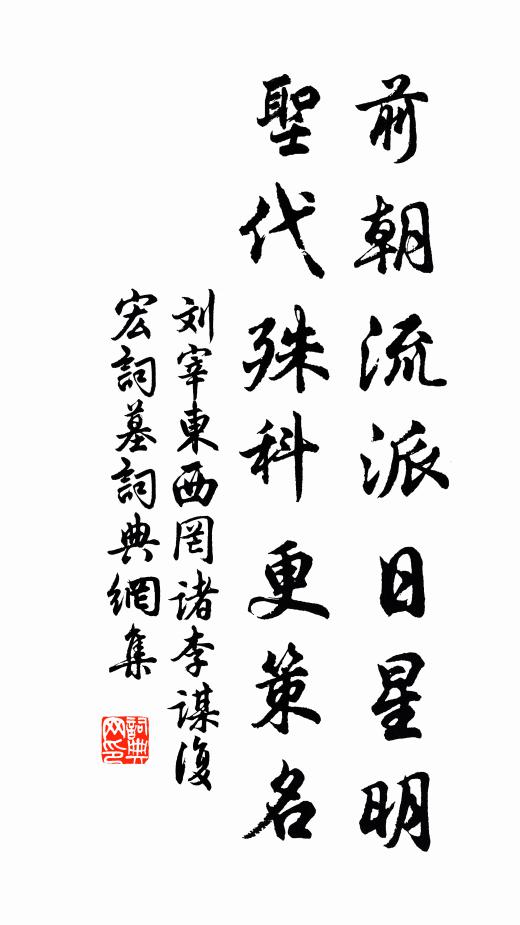 前朝流派日星明
聖代殊科更策名
刘宰東西罔诸李谋復
宏詞墓詞典網集
詞典
网印